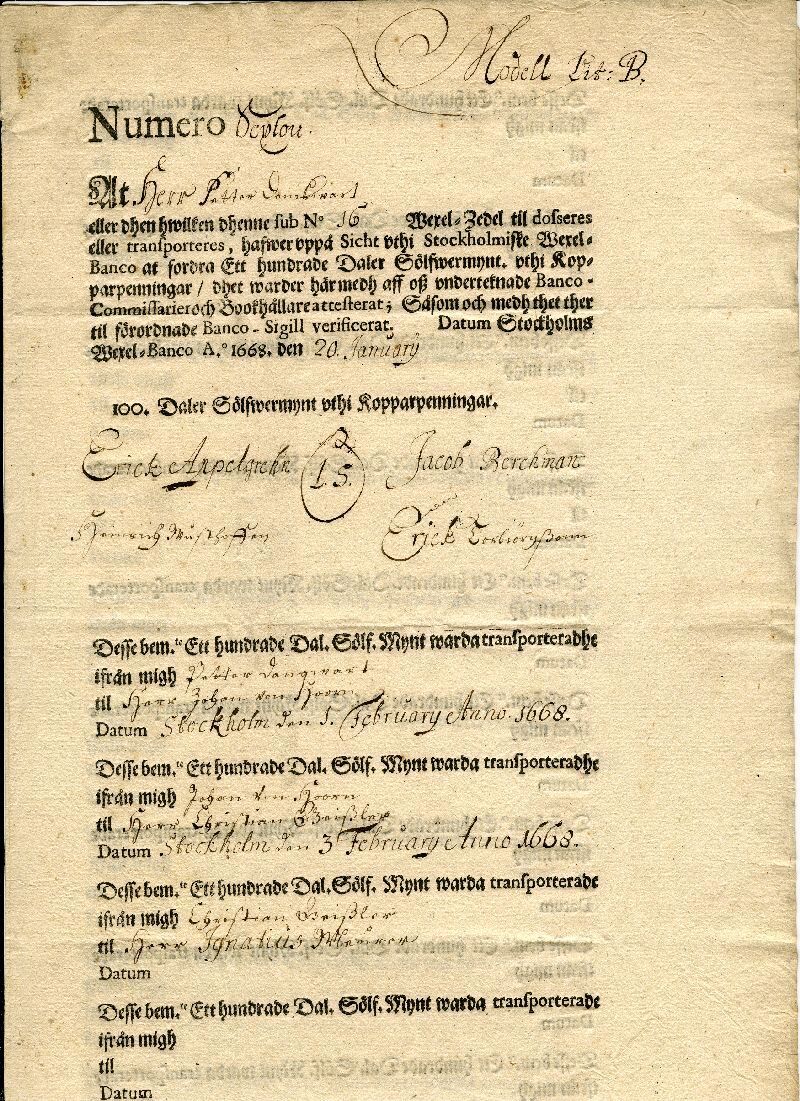 Modell Lit: B.
Numero Sexton.
At Herr Petter Danckwart
eller dhen hwilken dhenne sub N° 16 Wexel-Zedel til dosseres
eller transporteres, hafwer uppå Sicht vthi Stockholmiske Wexel-
Banco at fordra Ett hundrade Daler Sölfwermynt. vthi Kop-
parpenningar / dhet warder härmedh aff oß vnderteknade Banco-
Commissarier och Bookhållare attesterat; Såsom och medh thet ther
til förordnade Banco-Sigill verificerat. Datum Stockholms
Wexel-Banco A.° 1668. den 20. January
100. Daler Sölfwermynt vthi Kopparpenningar.
Erick Appelgrehn L.S. Jacob Berckman
Heinrich Erick
Desse bem.te Ett hundrade Dal. Sölf. Mynt warda transporteradhe
ifrån migh Petter Danqwart
til Herr Johan von Hoorn
Datum Stockholm den 1. February Anno 1668.
Desse bem.te Ett hundrade Dal. Sölf. Mynt warda transporteradhe
ifrån migh Johan von Hoorn
til Herr Christian Geißler
Datum Stockholm den 3 February Anno 1668.
Desse bem.te Ett hundrade Dal. Sölf. Mynt warda transporterade
ifrån migh Christian Geißler
til Herr Ignatius Meurer
Datum
Desse bem.te Ett hundrade Dal. Sölf. Mynt warda transporterade
ifrån migh
til
Datum